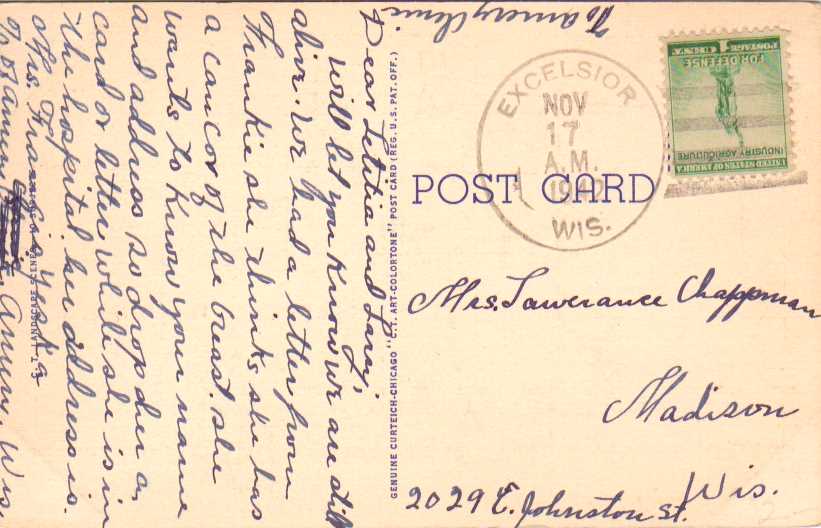 Dear Letitia and Larry;
will let you know we are still
alive. We had a letter from
Frankie she thinks she has
a cancor of the breast. she
wants to know your name
and address so drop her a
card or letter while she is in
the hospital. her address is.
Mrs. Frances
Amery, Wis.
To Amery Clinic
GENUINE CURTEICH-CHICAGO "C.T. ART-COLORTONE" POST CARD (REG. U.S. PAT. OFF.)
POST CARD
EXCELSIOR
NOV
17
A.M.
1942
WIS.
UNITED STATES OF AMERICA
INDUSTRY AGRICULTURE
FOR DEFENSE
1 CENT
POSTAGE
Mrs. Lawerance Chappman
Madison
Wis.
2029 E. Johnston St.